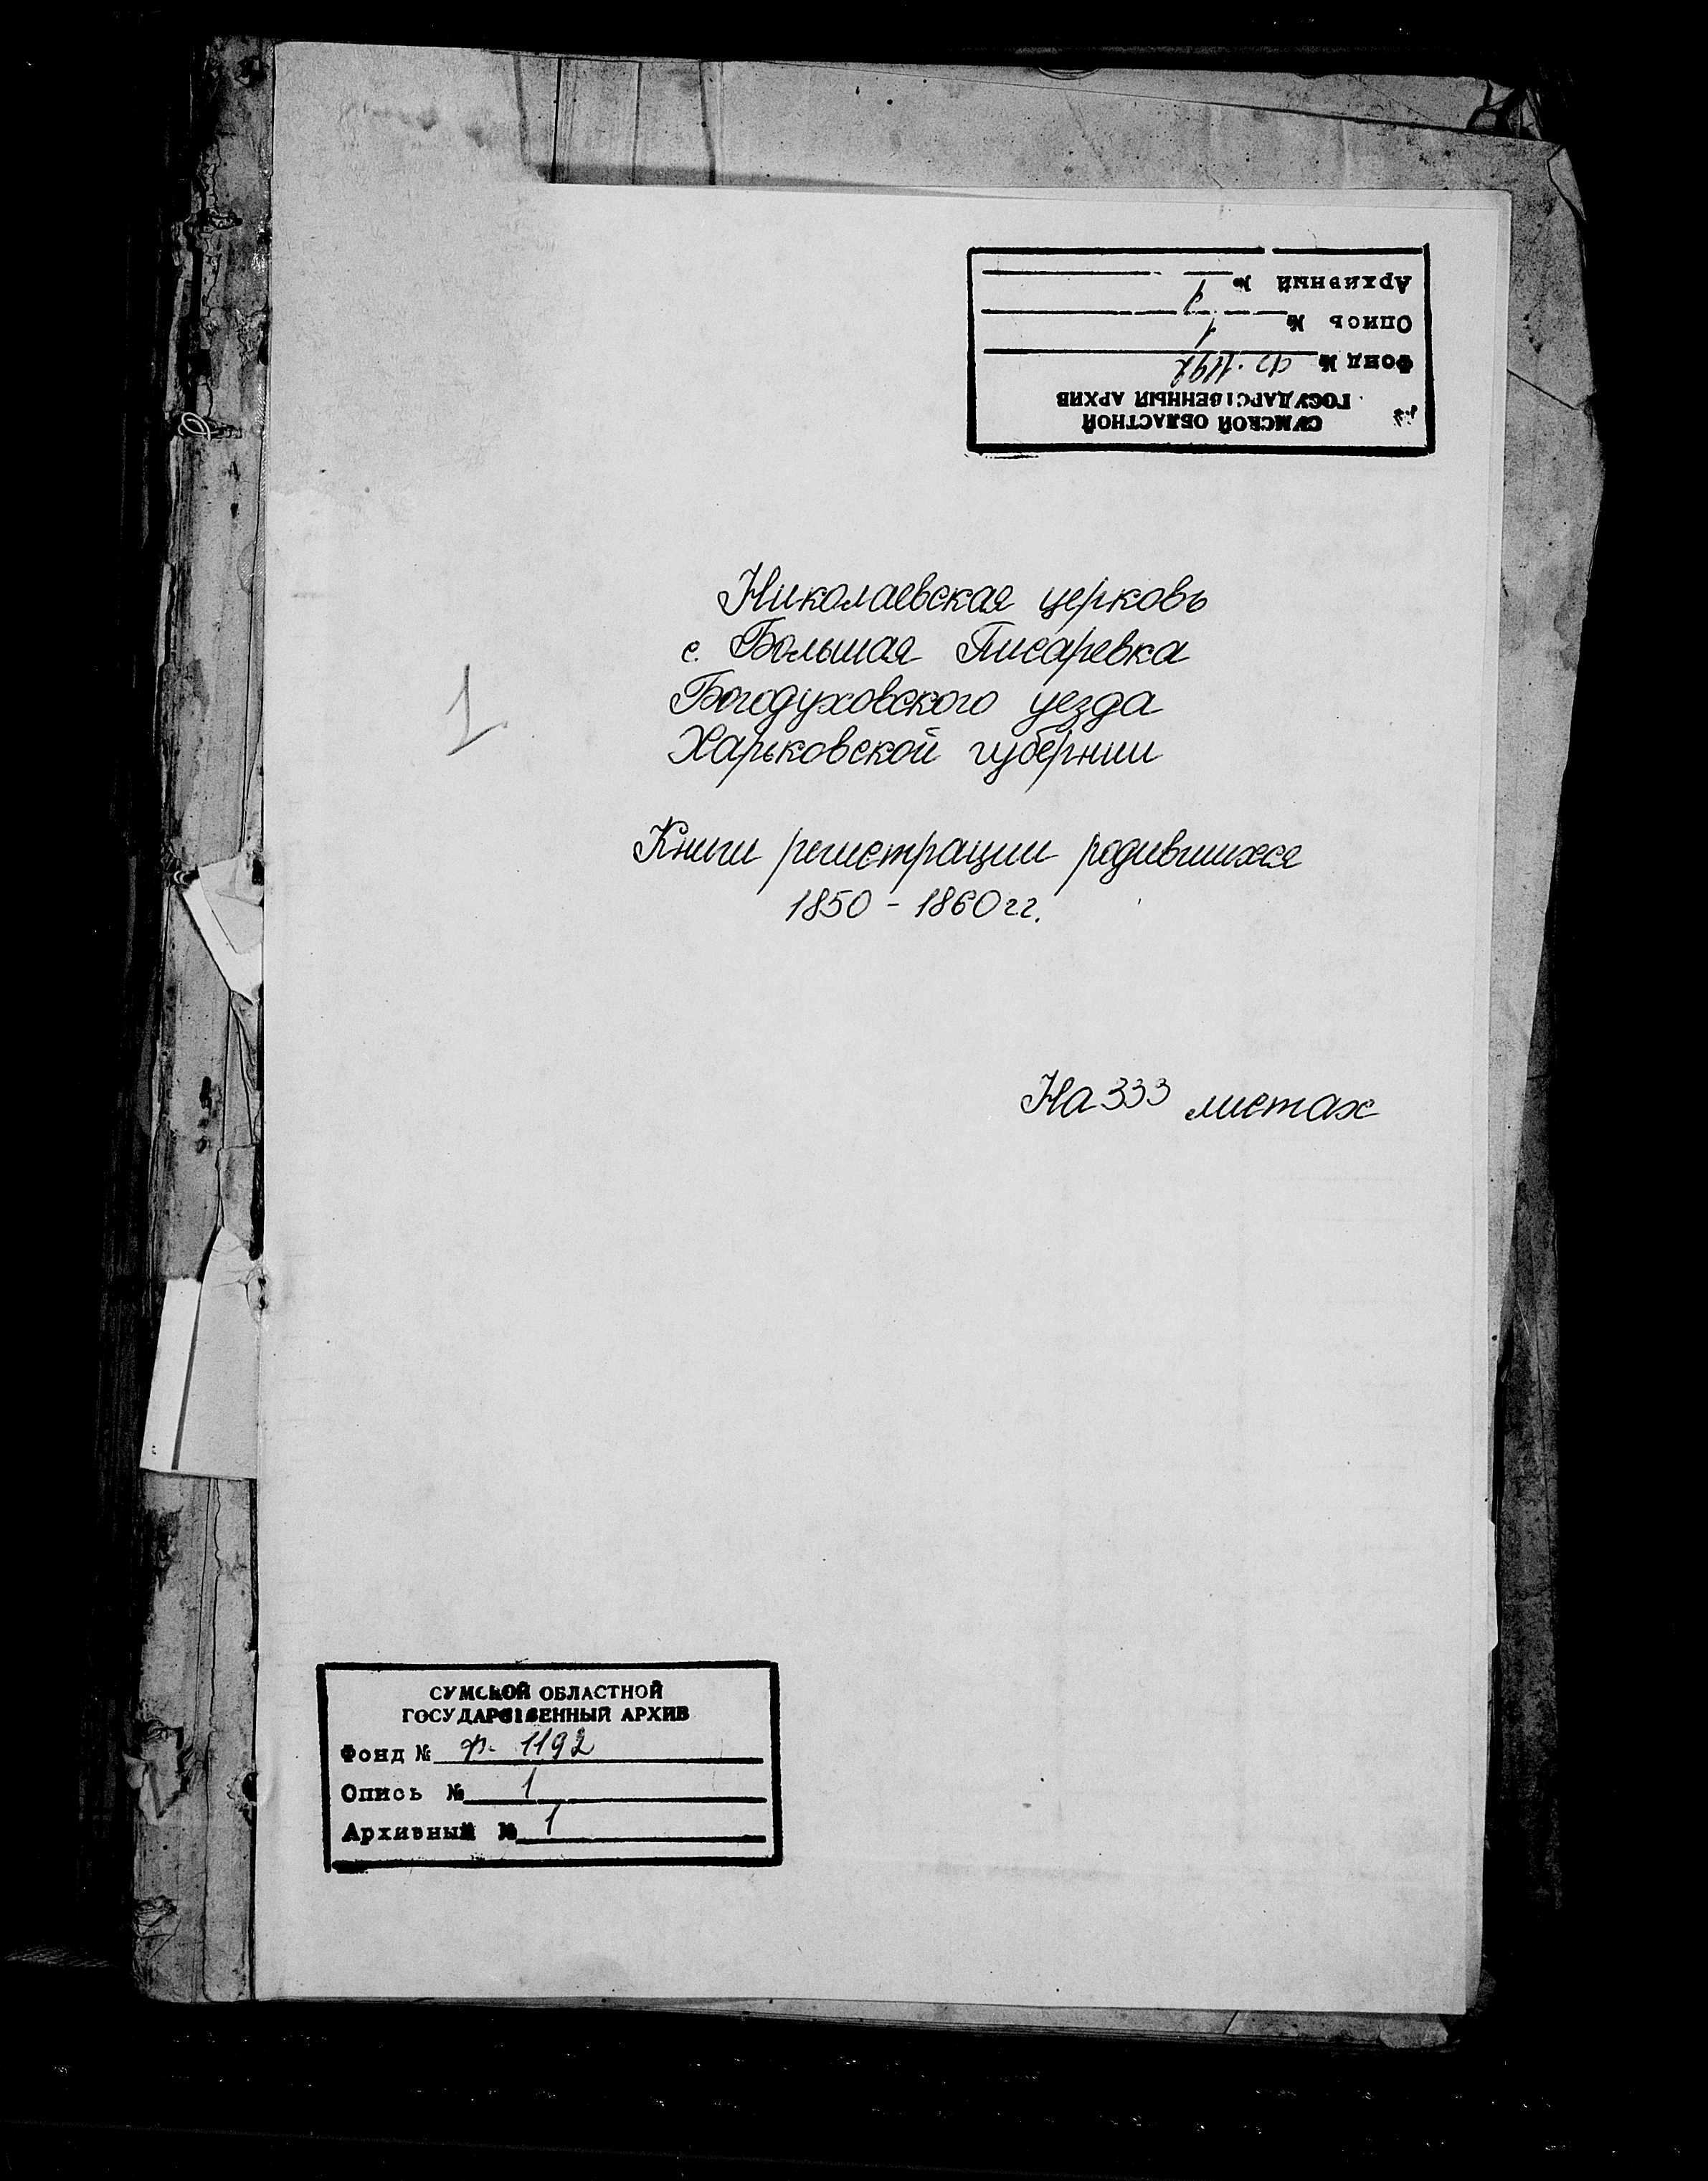 СУМСКОЙ ОБЛАСТНОЙ
ГОСУДАРСТВЕННЫЙ АРХИВ
Фонд № Ф. 1192
Опись № 1
Архивный № 1
Николаевская церковь
с. Большая Писаревка
Богодуховского уезда
Харьковской губернии
1
Книги регистрации родившихся
1850 - 1860 гг.
На 333 листах
СУМСКОЙ ОБЛАСТНОЙ
ГОСУДАРСТВЕННЫЙ АРХИВ
Фонд № Ф. 1192
Опись № 1
Архивный № 1